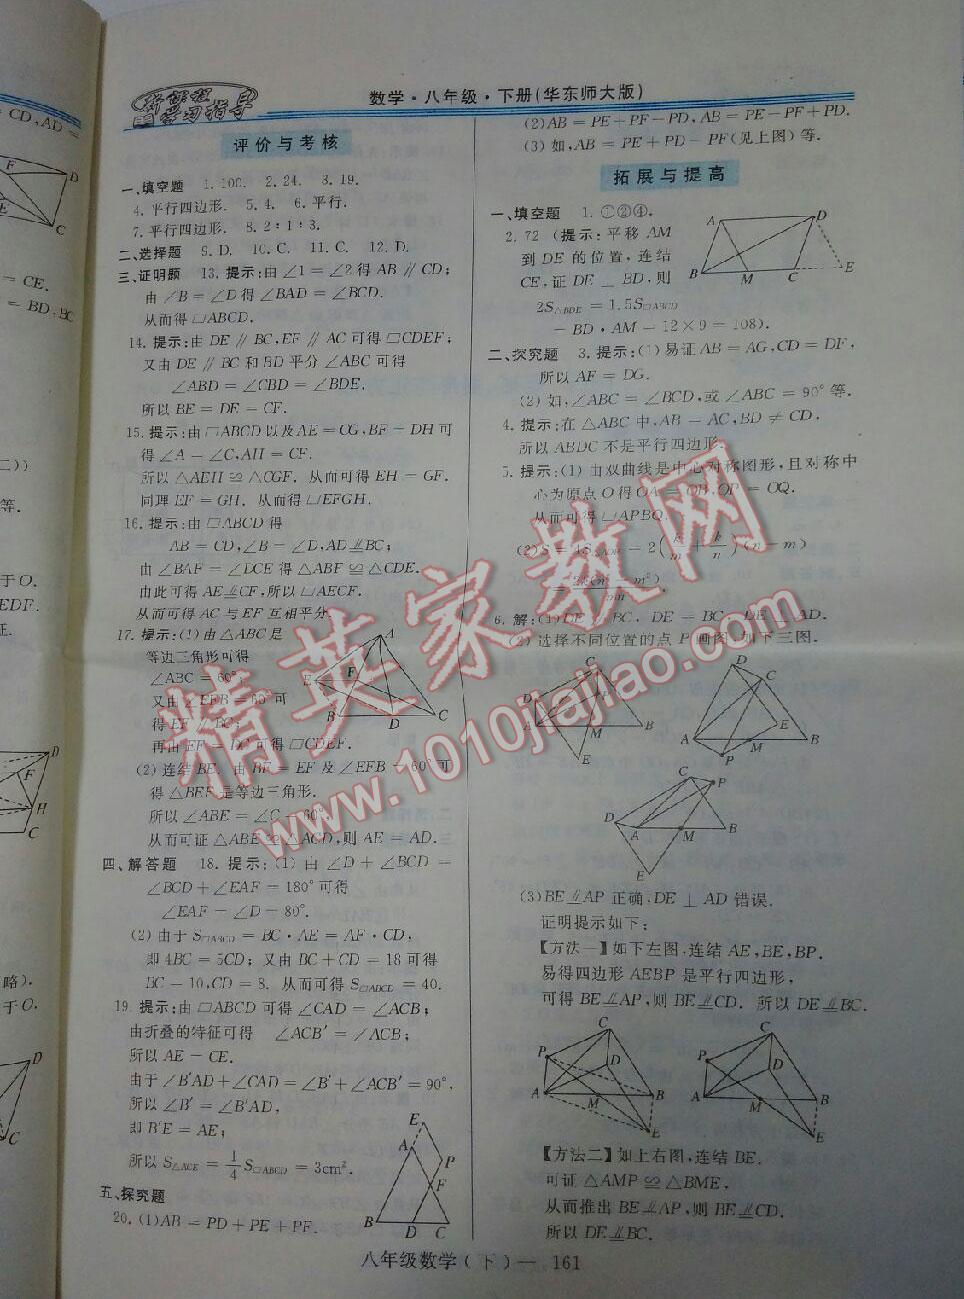 新课程
学习指导
数学·八年级·下册(华东师大版)
评价与考核
一、填空题 1. 100. 2. 24. 3. 19.
4. 平行四边形. 5. 4. 6. 平行.
7. 平行四边形. 8. 2∶1∶3.
二、选择题 9. D. 10. C. 11. C. 12. D.
三、证明题 13. 提示:由∠1=∠2得AB∥CD;
由∠B=∠D得∠BAD=∠BCD.
从而得□ABCD.
14. 提示:由DE∥BC,EF∥AC可得□CDEF;
又由DE∥BC和BD平分∠ABC可得
∠ABD=∠CBD=∠BDE.
所以BE=DE=CF.
15. 提示:由□ABCD以及AE=CG,BF=DH可
得∠A=∠C,AH=CF.
所以△AEH≌△CGF. 从而可得EH=GF.
同理EF=GH. 从而得□EFGH.
16. 提示:由□ABCD得
AB=CD,∠B=∠D,AD∥BC;
由∠BAF=∠DCE得△ABF≌△CDE.
由此可得AE∥CF,所以□AECF.
从而可得AC与EF互相平分.
17. 提示:(1)由△ABC是
等边三角形可得
∠ABC=60°
又由∠EFB=60°可
得EF∥BC;
再由EF=DC可得□CDEF.
(2)连结BE. 由BF=EF及∠EFB=60°可
得△BEF是等边三角形.
所以∠ABE=∠C=60°.
从而可证△ABE≌△ACD,则AE=AD.
四、解答题 18. 提示:(1)由∠D+∠BCD=
∠BCD+∠EAF=180°可得
∠EAF=∠D=80°.
(2)由于S□ABCD=BC·AE=AF·CD,
即4BC=5CD;又由BC+CD=18可得
BC=10,CD=8. 从而可得S□ABCD=40.
19. 提示:由□ABCD可得∠CAD=∠ACB;
由折叠的特征可得 ∠ACB′=∠ACB;
所以AE=CE.
由于∠B′AD+∠CAD=∠B′+∠ACB′=90°.
所以∠B′=∠B′AD,
即B′E=AE;
所以S△ACE=1/4 S□ABCD=3cm².
五、探究题
20. (1)AB=PD+PE+PF.
(2)AB=PE+PF-PD,AB=PE-PF+PD.
(3)如,AB=PE+PD-PF(见上图)等.
拓展与提高
一、填空题 1. ①②④.
2. 72 (提示:平移AM
到DE的位置,连结
CE,证DE⊥BD,则
2S△BDE=1.5S□ABCD
=BD·AM=12×9=108).
二、探究题 3. 提示:(1)易证AB=AG,CD=DF,
所以AF=DG.
(2)如,∠ABC=∠BCD,或∠ABC=90°等.
4. 提示:在△ABC中,AB=AC,BD≠CD.
所以ABDC不是平行四边形.
5. 提示:(1)由双曲线是中心对称图形,且对称中
心为原点O得OA=OB,OP=OQ.
从而可得□APBQ.
6. 解:(1)DE∥BC. DE=BC. DE⊥AD.
(2)选择不同位置的点P画图,如下三图.
(3)BE∥AP正确,DE⊥AD错误.
证明提示如下:
【方法一】如下左图,连结AE,BE,BP.
易得四边形AEBP是平行四边形,
可得BE∥AP,则BE∥CD. 所以DE∥BC.
【方法二】如上右图,连结BE.
可证△AMP≌△BME.
从而推出BE∥AP,则BE∥CD.
所以DE∥BC.
八年级数学(下)— 161
精英家教网
www.1010jiajiao.com